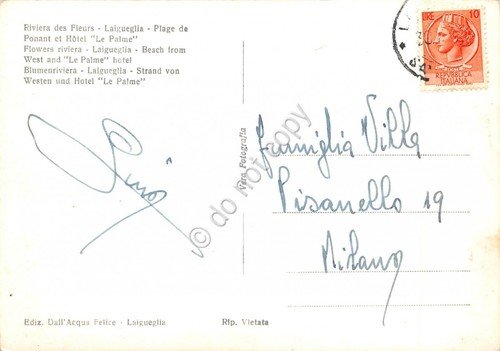 Riviera des Fleurs - Laigueglia - Plage de
Ponant et Hôtel "Le Palme"
Flowers riviera - Laigueglia - Beach from
West and "Le Palme" hotel
Blumenriviera - Laigueglia - Strand von
Westen und Hotel "Le Palme"
LIRE 10
REPUBBLICA
ITALIANA
Famiglia Villa
Pisanello 19
Milano
Vera Fotografia
© do not copy
Ediz. Dall'Acqua Felice - Laigueglia
Rip. Vietata